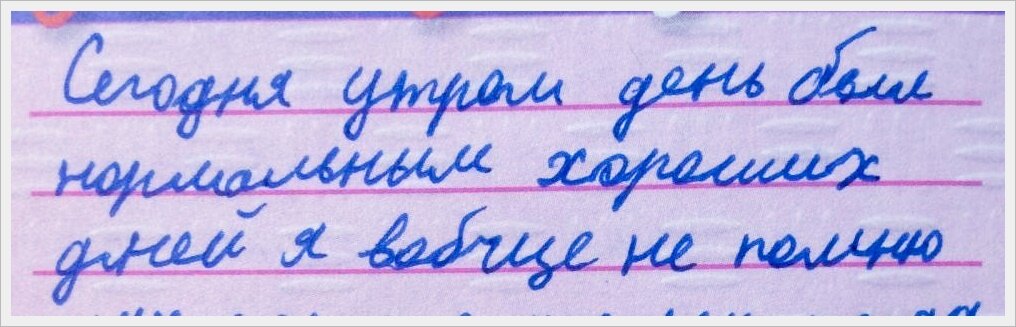 Сегодня утром день был
нормальным хороших
дней я вобчще не помню